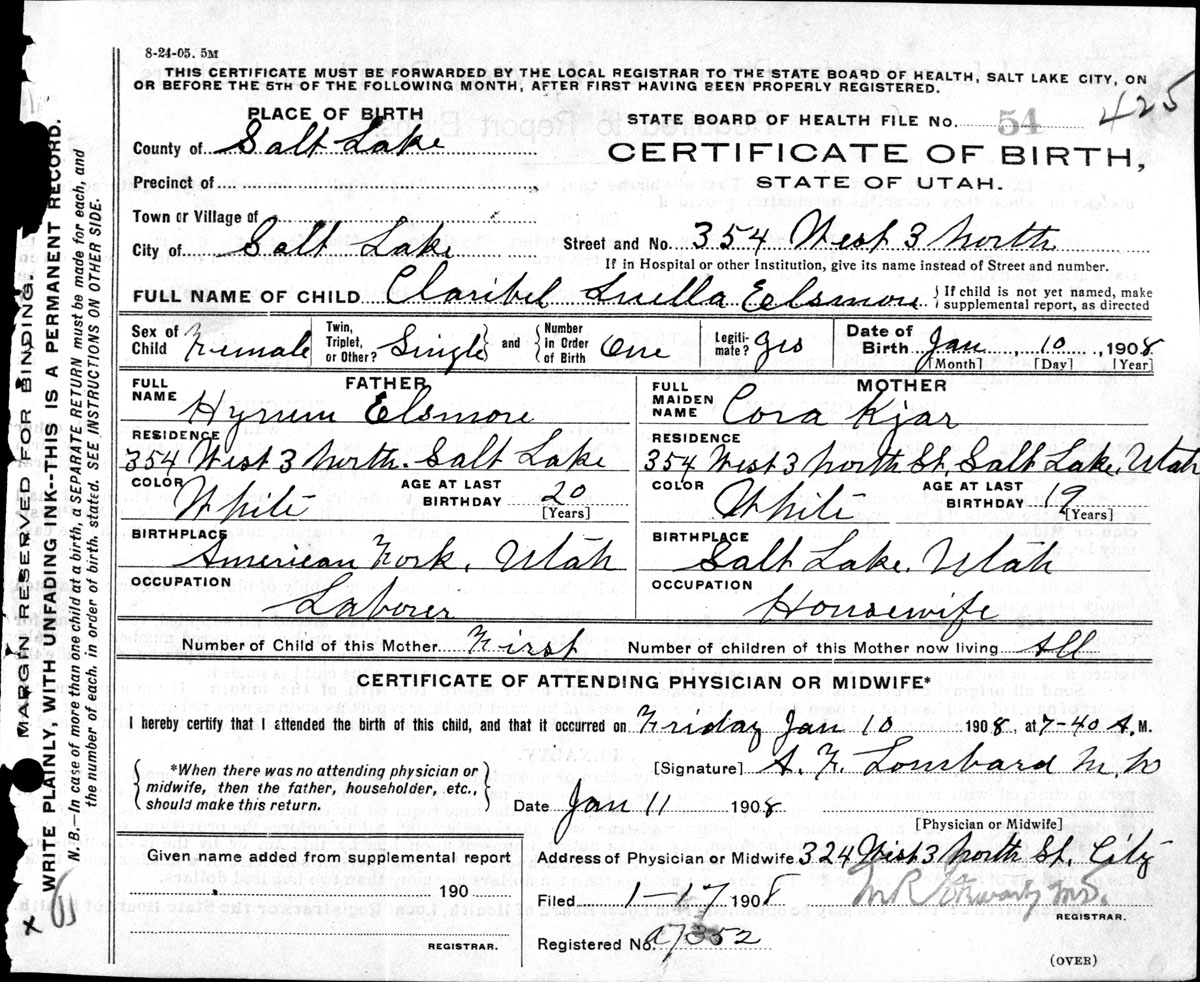 8-24-05. 5M
THIS CERTIFICATE MUST BE FORWARDED BY THE LOCAL REGISTRAR TO THE STATE BOARD OF HEALTH, SALT LAKE CITY, ON
OR BEFORE THE 5TH OF THE FOLLOWING MONTH, AFTER FIRST HAVING BEEN PROPERLY REGISTERED.
425
PLACE OF BIRTH
STATE BOARD OF HEALTH FILE No. 54
County of Salt Lake
CERTIFICATE OF BIRTH,
Precinct of "
STATE OF UTAH.
Town or Village of "
City of Salt Lake Street and No. 354 West 3 North
If in Hospital or other Institution, give its name instead of Street and number.
FULL NAME OF CHILD Claribel Luella Eelsmore { If child is not yet named, make
supplemental report, as directed
Sex of Child Female
Twin, Triplet, or Other? Single } and { Number in Order of Birth One
Legiti-mate? Yes
Date of Birth Jan, 10, 1908
[Month] [Day] [Year]
FATHER
FULL NAME Hyrum Elsmore
RESIDENCE
354 West 3 North. Salt Lake
COLOR White AGE AT LAST BIRTHDAY 20
[Years]
BIRTHPLACE
American Fork, Utah
OCCUPATION
Laborer
MOTHER
FULL MAIDEN NAME Cora Kjar
RESIDENCE
354 West 3 North St, Salt Lake, Utah
COLOR White AGE AT LAST BIRTHDAY 19
[Years]
BIRTHPLACE
Salt Lake, Utah
OCCUPATION
Housewife
Number of Child of this Mother First Number of children of this Mother now living All
CERTIFICATE OF ATTENDING PHYSICIAN OR MIDWIFE*
I hereby certify that I attended the birth of this child, and that it occurred on Friday Jan 10 1908, at 7-40 A. M.
{ *When there was no attending physician or
midwife, then the father, householder, etc.,
should make this return. }
[Signature] A. F. Lombard M. W
Date Jan 11 1908
[Physician or Midwife]
Given name added from supplemental report
190
REGISTRAR.
Address of Physician or Midwife 324 West 3 North St. City
Filed 1-17 1908
REGISTRAR.
Registered No. a7352
(OVER)
MARGIN RESERVED FOR BINDING.
WRITE PLAINLY, WITH UNFADING INK--THIS IS A PERMANENT RECORD.
N. B.—In case of more than one child at a birth, a SEPARATE RETURN must be made for each, and
the number of each, in order of birth, stated. SEE INSTRUCTIONS ON OTHER SIDE.
X